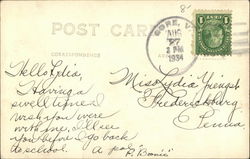 8'
POST CARD
CORRESPONDENCE
GORE, V
AUG
27
2 PM
1934
1
Hello Lydia,
Having a
swell time
wish you were
with me. I'll see
you before I go back
to school. A pal, "Bonie"
Miss Lydia
Fredericksburg
Penna